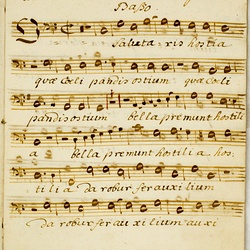 Basso.
O salutaris hostia
quæ Cœli pandis ostium quæ Cœli
pandis ostium bella premunt hostili
a bella premunt hostilia hos
tilia da robur fer auxilium
da robur fer auxilium auxi